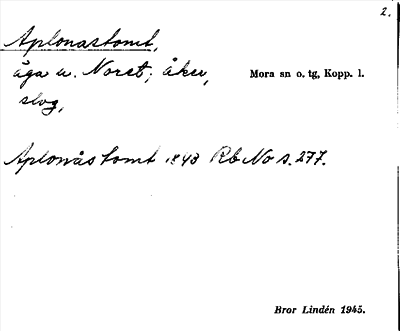 2.
Aplonastomt,
äga u. Noret; åker,
slog,
Mora sn o. tg, Kopp. l.
Aplonås tomt 1843 Rb No s. 277.
Bror Lindén 1945.